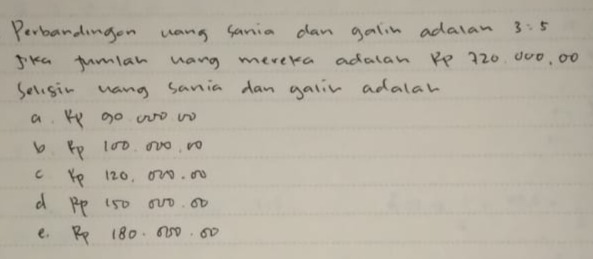 Perbandingan uang sania dan galih adalah 3:5
Jika jumlah uang mereka adalah Rp 720.000,00
Selisih uang sania dan galih adalah
a. Rp 90.000.00
b. Rp 100.000.00
c Rp 120.000.00
d Rp 150 000.00
e. Rp 180.000.00